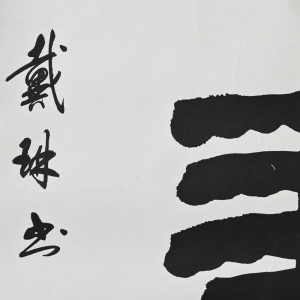 戴琳书